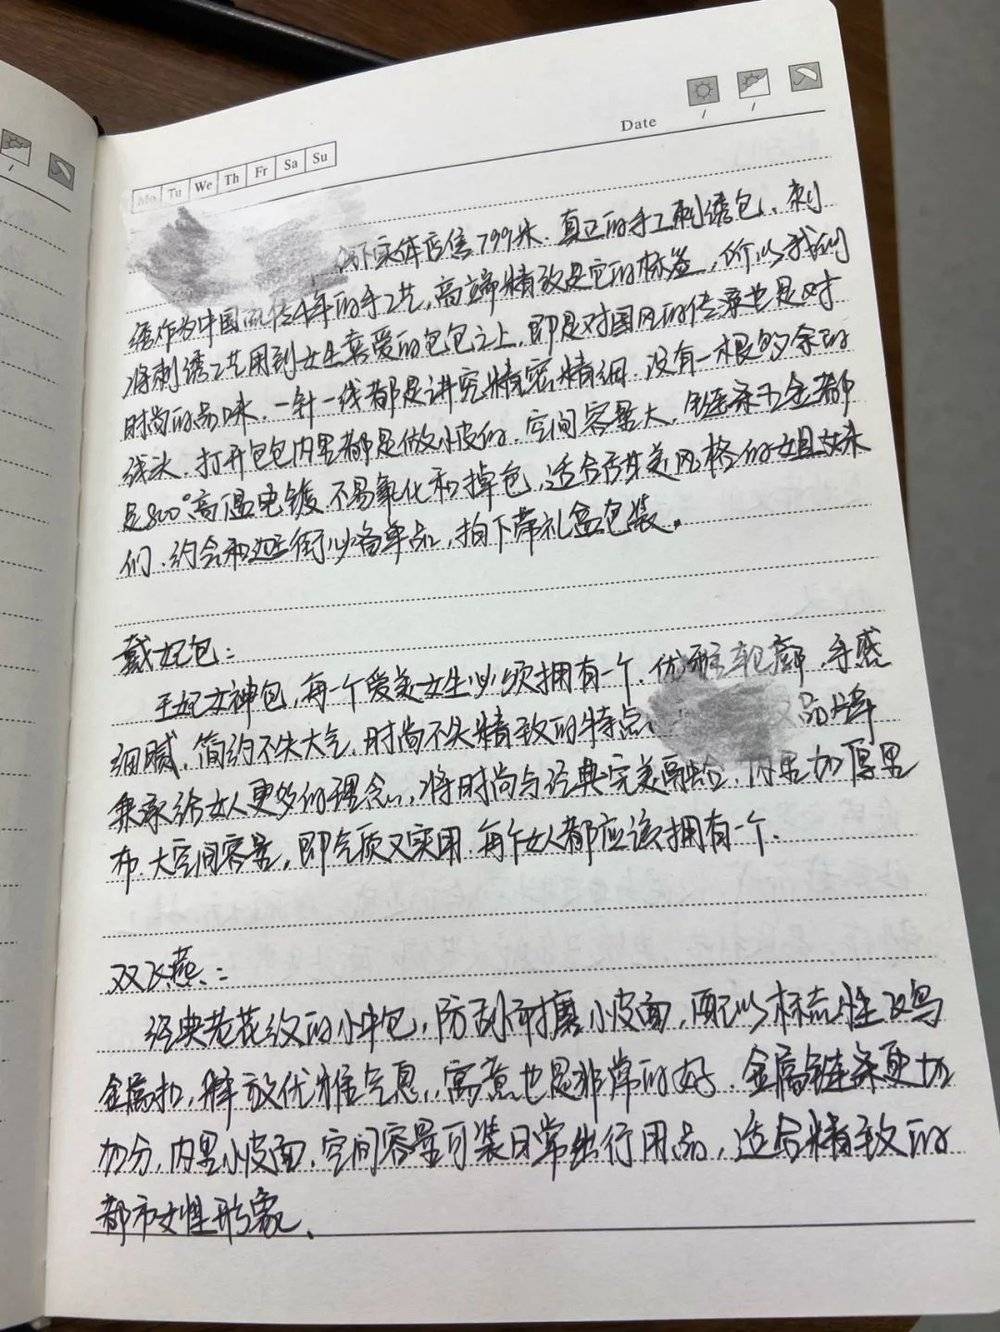 Date
Mo Tu We Th Fr Sa Su
线下实体店售799米、真正的手工刺绣包、刺
绣作为中国流传千年的手工艺,高端精致是它的标签,所以我们
将刺绣工艺用到女生喜爱的包包之上,即是对国风的传承也是对
时尚的品味、一针一线都是讲究精密精细、没有一根多余的
线头、打开包包内里都是做小皮的、空间容量大、链条五金都
是800°高温电镀、不易氧化和掉色,适合所有爱美风格的姐妹
们、约会和逛街必备单品,拍下带礼盒包装。
戴妃包:
王妃女神包,每一个爱美女生必须拥有一个、优雅轮廓、手感
细腻、简约不失大气、时尚不失精致的特点 品牌
秉承给女人更多的理念,将时尚与经典完美融合、内里加厚里
布、大空间容量,即气质又实用、每个女人都应该拥有一个、
双飞燕:
经典老花纹的小牛包,防刮耐磨小皮面,配以标志性双鸟
金属扣,释放优雅气息,寓意也是非常的好、金属链条更加
加分,内里小皮面、空间容量可装日常出行用品,适合精致的
都市女性形象、